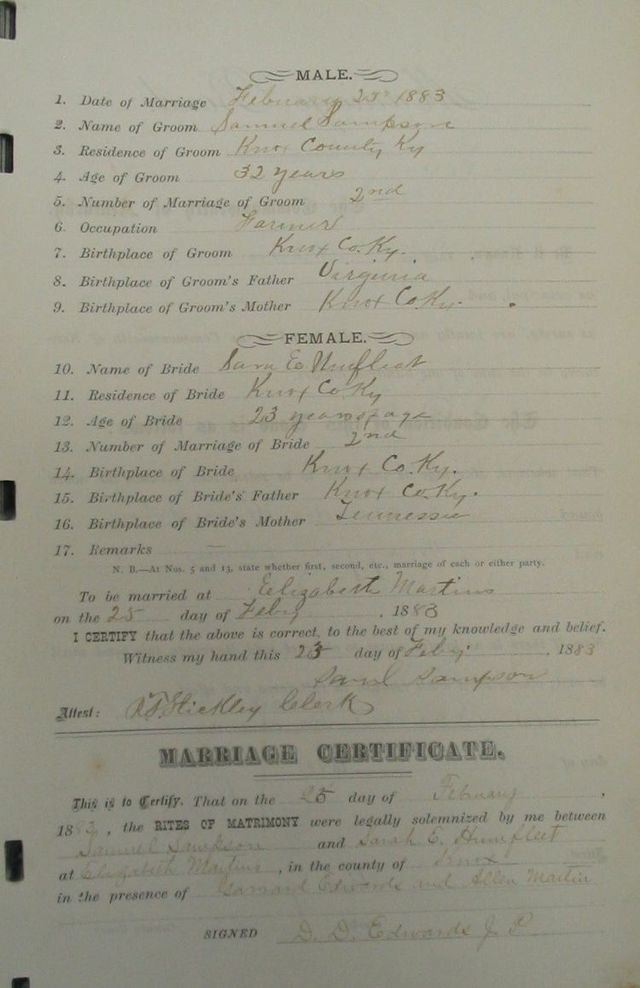 MALE.
1. Date of Marriage February 25th 1883
2. Name of Groom Samuel Sampson
3. Residence of Groom Knox County Ky
4. Age of Groom 32 years
5. Number of Marriage of Groom 2nd
6. Occupation Farmer
7. Birthplace of Groom Knox Co. Ky.
8. Birthplace of Groom's Father Virginia
9. Birthplace of Groom's Mother Knox Co. Ky.
FEMALE.
10. Name of Bride Sara E
11. Residence of Bride Knox Co Ky
12. Age of Bride 23 years age
13. Number of Marriage of Bride 2nd
14. Birthplace of Bride Knox Co. Ky.
15. Birthplace of Bride's Father Knox Co. Ky.
16. Birthplace of Bride's Mother Tennessee
17. Remarks —
N. B.—At Nos. 5 and 13, state whether first, second, etc., marriage of each or either party.
To be married at Elizabeth Martins
on the 25 day of Feby, 1883
I CERTIFY that the above is correct, to the best of my knowledge and belief.
Witness my hand this 23 day of Feby, 1883
Saml Sampson
Attest: Hickley Clerk
MARRIAGE CERTIFICATE.
This is to Certify. That on the 25 day of February,
1883, the RITES OF MATRIMONY were legally solemnized by me between
Samuel Sampson and Sarah E. Humfleet
at Elizabeth Martins, in the county of Knox
in the presence of Garrard Edwards and Allen Martin
SIGNED D. D. Edwards J. P.